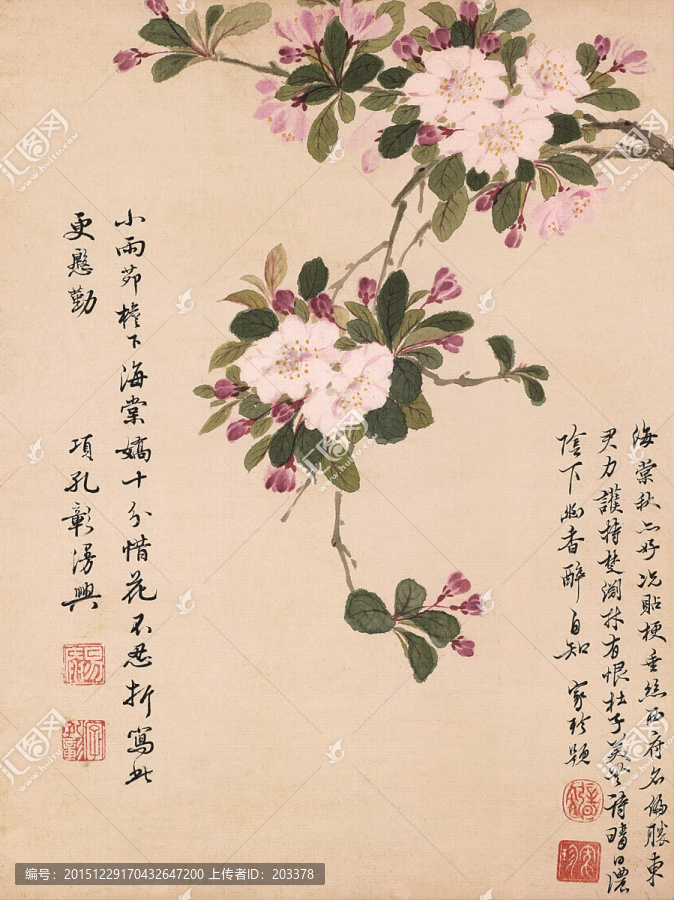 海棠秋亦好況貼梗垂絲西府名偏勝東
君力護持淵材有恨杜子美無詩晴日濃
陰下幽香醉自知 家珍題
小雨茆檐下海棠嬌十分惜花不忍折寫此
更慇勤 項孔彰漫興
汇图网
www.huitu.com
编号：20151229170432647200 上传者ID：203378